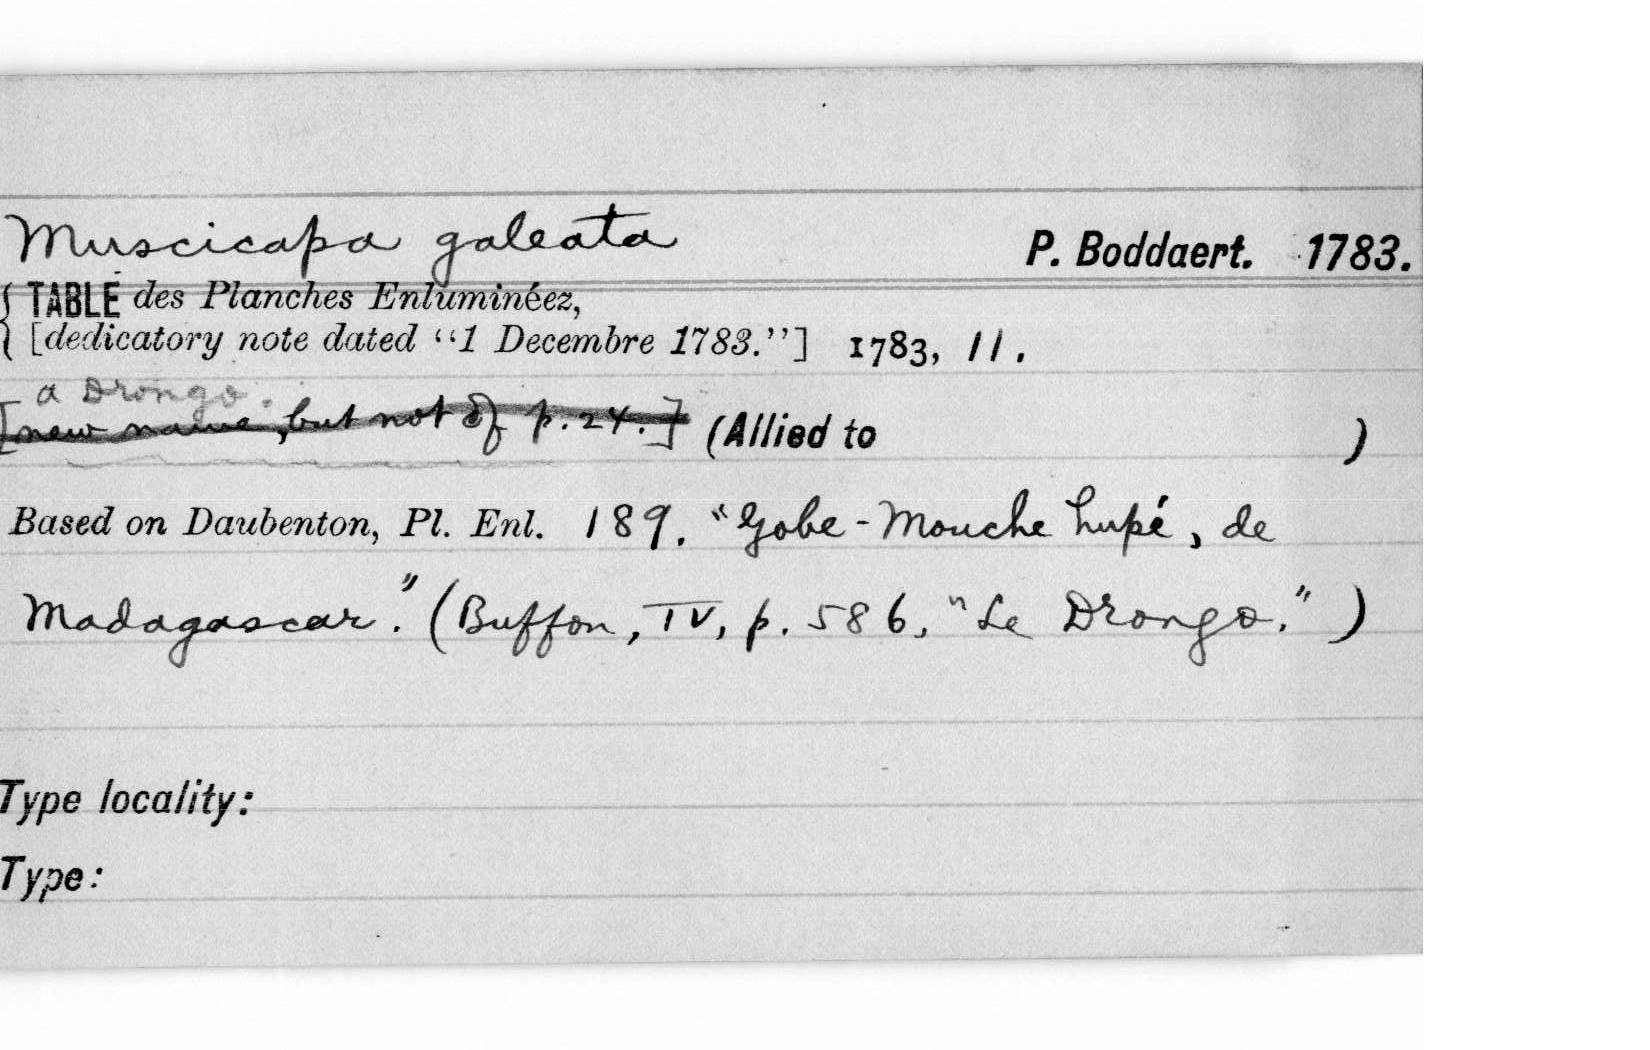 Muscicapa galeata P. Boddaert. 1783.
TABLE des Planches Enluminéez,
[dedicatory note dated “1 Decembre 1783.”] 1783, 11.
a Drongo.
[new name, but not of p. 24.] (Allied to )
Based on Daubenton, Pl. Enl. 189. "Gobe-Mouche hupé, de
Madagascar." (Buffon, IV, p. 586, "Le Drongo.")
Type locality:
Type: